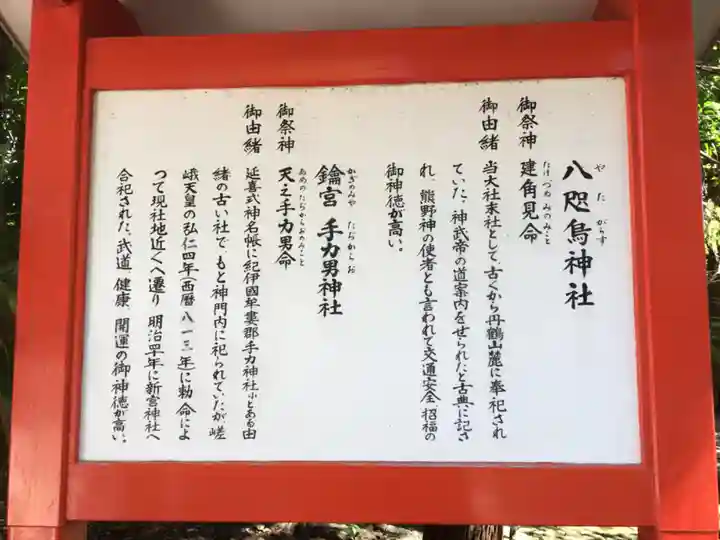 八咫烏神社
やたがらす
御祭神 建角見命
たけづぬみのみこと
御由緒 当大社末社として、古くから丹鶴山麓に奉祀され
ていた、神武帝の道案内をせられたと古典に記さ
れ、熊野神の使者とも言われて交通安全、招福の
御神徳が高い。
鑰宮 手力男神社
かぎのみや たぢからお
御祭神 天之手力男命
あめのたぢからおのみこと
御由緒 延喜式神名帳に紀伊國牟婁郡手力神社小とある由
緒の古い社で、もと神門内に祀られていたが嵯
峨天皇の弘仁四年(西暦八一三年)に勅命によ
つて現社地近くへ遷り 明治四十年に新宮神社へ
合祀された、武道、健康、開運の御神徳が高い。